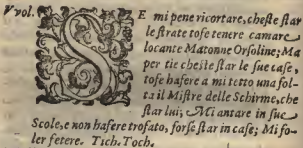 Vvol. SE mi pene ricortare, cheste star
le strate tofe tenere camare
locante Matonne Orsoline; Ma
per tie cheste star le sue case,
tofe hafere a mi tetto una fol-
ta il Mistre delle Schirme, che
star lui; Mi antare in sue
Scole, e non hafere trofato, forse star in case; Mi fo-
ler fetere. Tich. Toch.